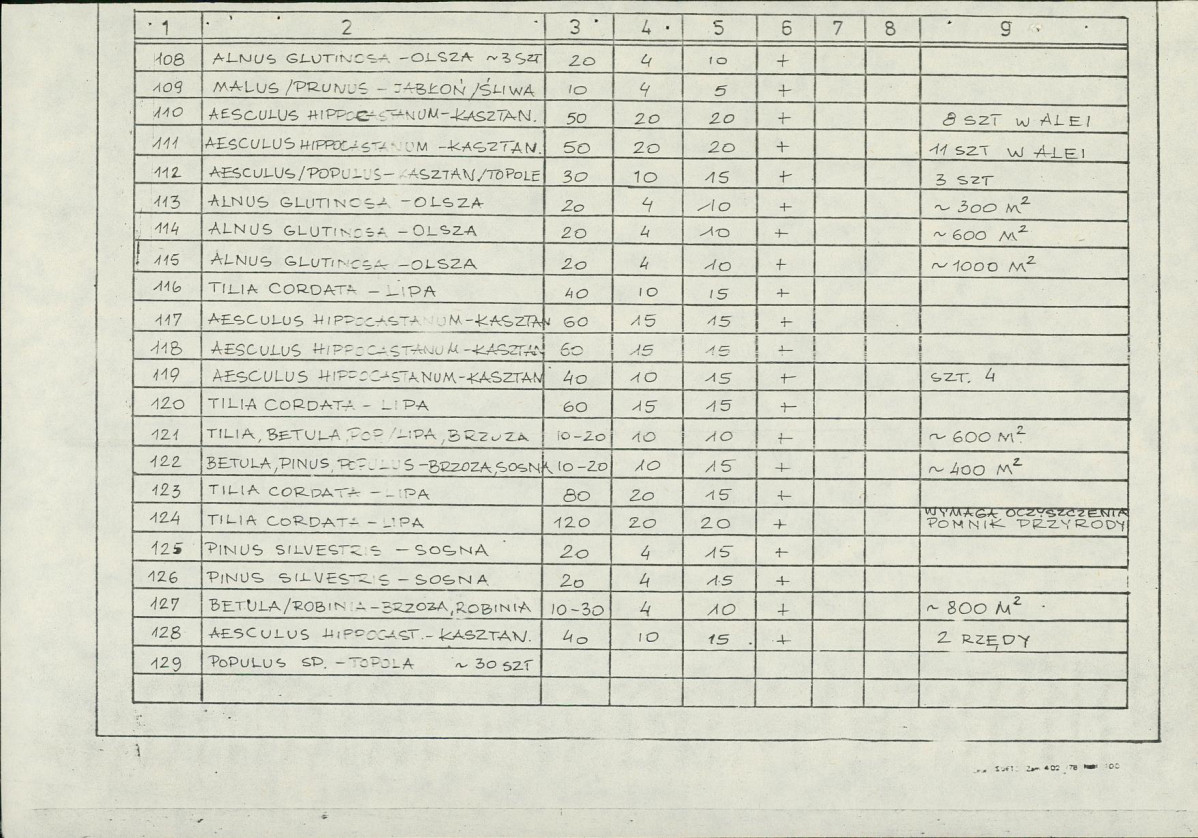 1 2 3 4 5 6 7 8 9
108 ALNUS GLUTINOSA - OLSZA ~3 SZT 20 4 10 +
109 MALUS/PRUNUS - JABŁOŃ/ŚLIWA 10 4 5 +
110 AESCULUS HIPPOCASTANUM-KASZTAN. 50 20 20 + 8 SZT W ALEI
111 AESCULUS HIPPOCASTANUM -KASZTAN. 50 20 20 + 11 SZT W ALEI
112 AESCULUS/POPULUS-KASZTAN/TOPOLE 30 10 15 + 3 SZT
113 ALNUS GLUTINOSA - OLSZA 20 4 10 + ~ 300 M²
114 ALNUS GLUTINOSA - OLSZA 20 4 10 + ~ 600 M²
115 ALNUS GLUTINOSA - OLSZA 20 4 10 + ~ 1000 M²
116 TILIA CORDATA - LIPA 40 10 15 +
117 AESCULUS HIPPOCASTANUM-KASZTAN 60 15 15 +
118 AESCULUS HIPPOCASTANUM-KASZTAN 60 15 15 +
119 AESCULUS HIPPOCASTANUM-KASZTAN 40 10 15 + SZT. 4
120 TILIA CORDATA - LIPA 60 15 15 +
121 TILIA, BETULA, POP/LIPA, BRZOZA 10-20 10 10 + ~ 600 M²
122 BETULA, PINUS, POPULUS-BRZOZA, SOSNA 10-20 10 15 + ~ 400 M²
123 TILIA CORDATA - LIPA 80 20 15 +
124 TILIA CORDATA - LIPA 120 20 20 + WYMAGA OCZYSZCZENIA
POMNIK PRZYRODY
125 PINUS SILVESTRIS - SOSNA 20 4 15 +
126 PINUS SILVESTRIS - SOSNA 20 4 15 +
127 BETULA/ROBINIA-BRZOZA, ROBINIA 10-30 4 10 + ~ 800 M²
128 AESCULUS HIPPOCAST.- KASZTAN. 40 10 15 + 2 RZĘDY
129 POPULUS SP. - TOPOLA ~ 30 SZT
Zam 402 78 100